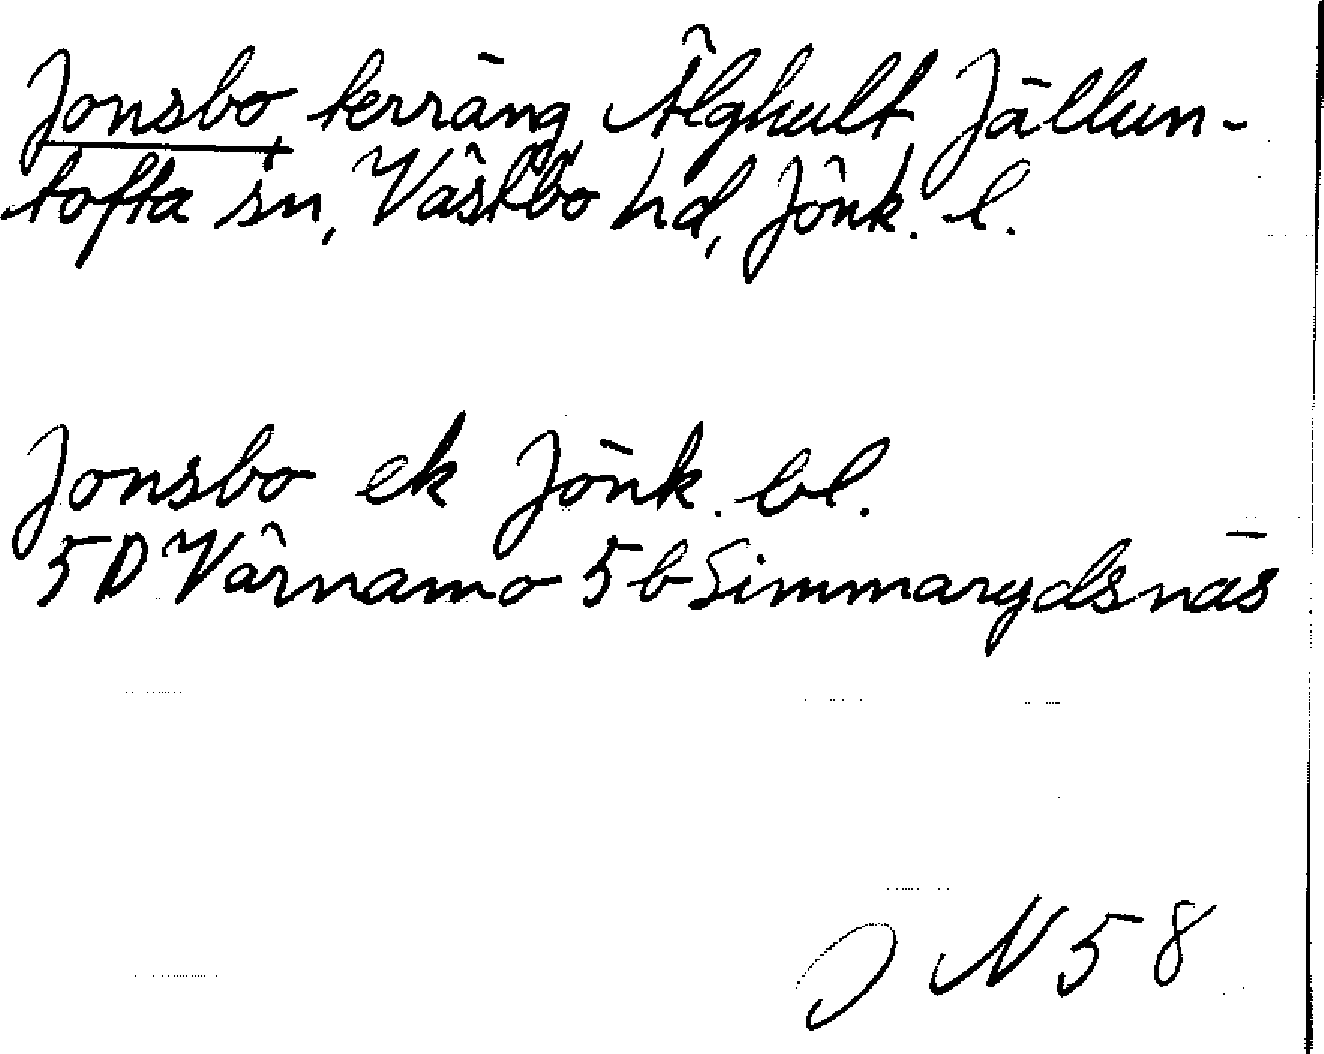 Jonsbo, terräng, Älghult Jällun-
tofta sn, Västbo hd, Jönk. l.
Jonsbo ek Jönk. bl.
5D Värnamo 5b Simmarydsnäs
J N 58